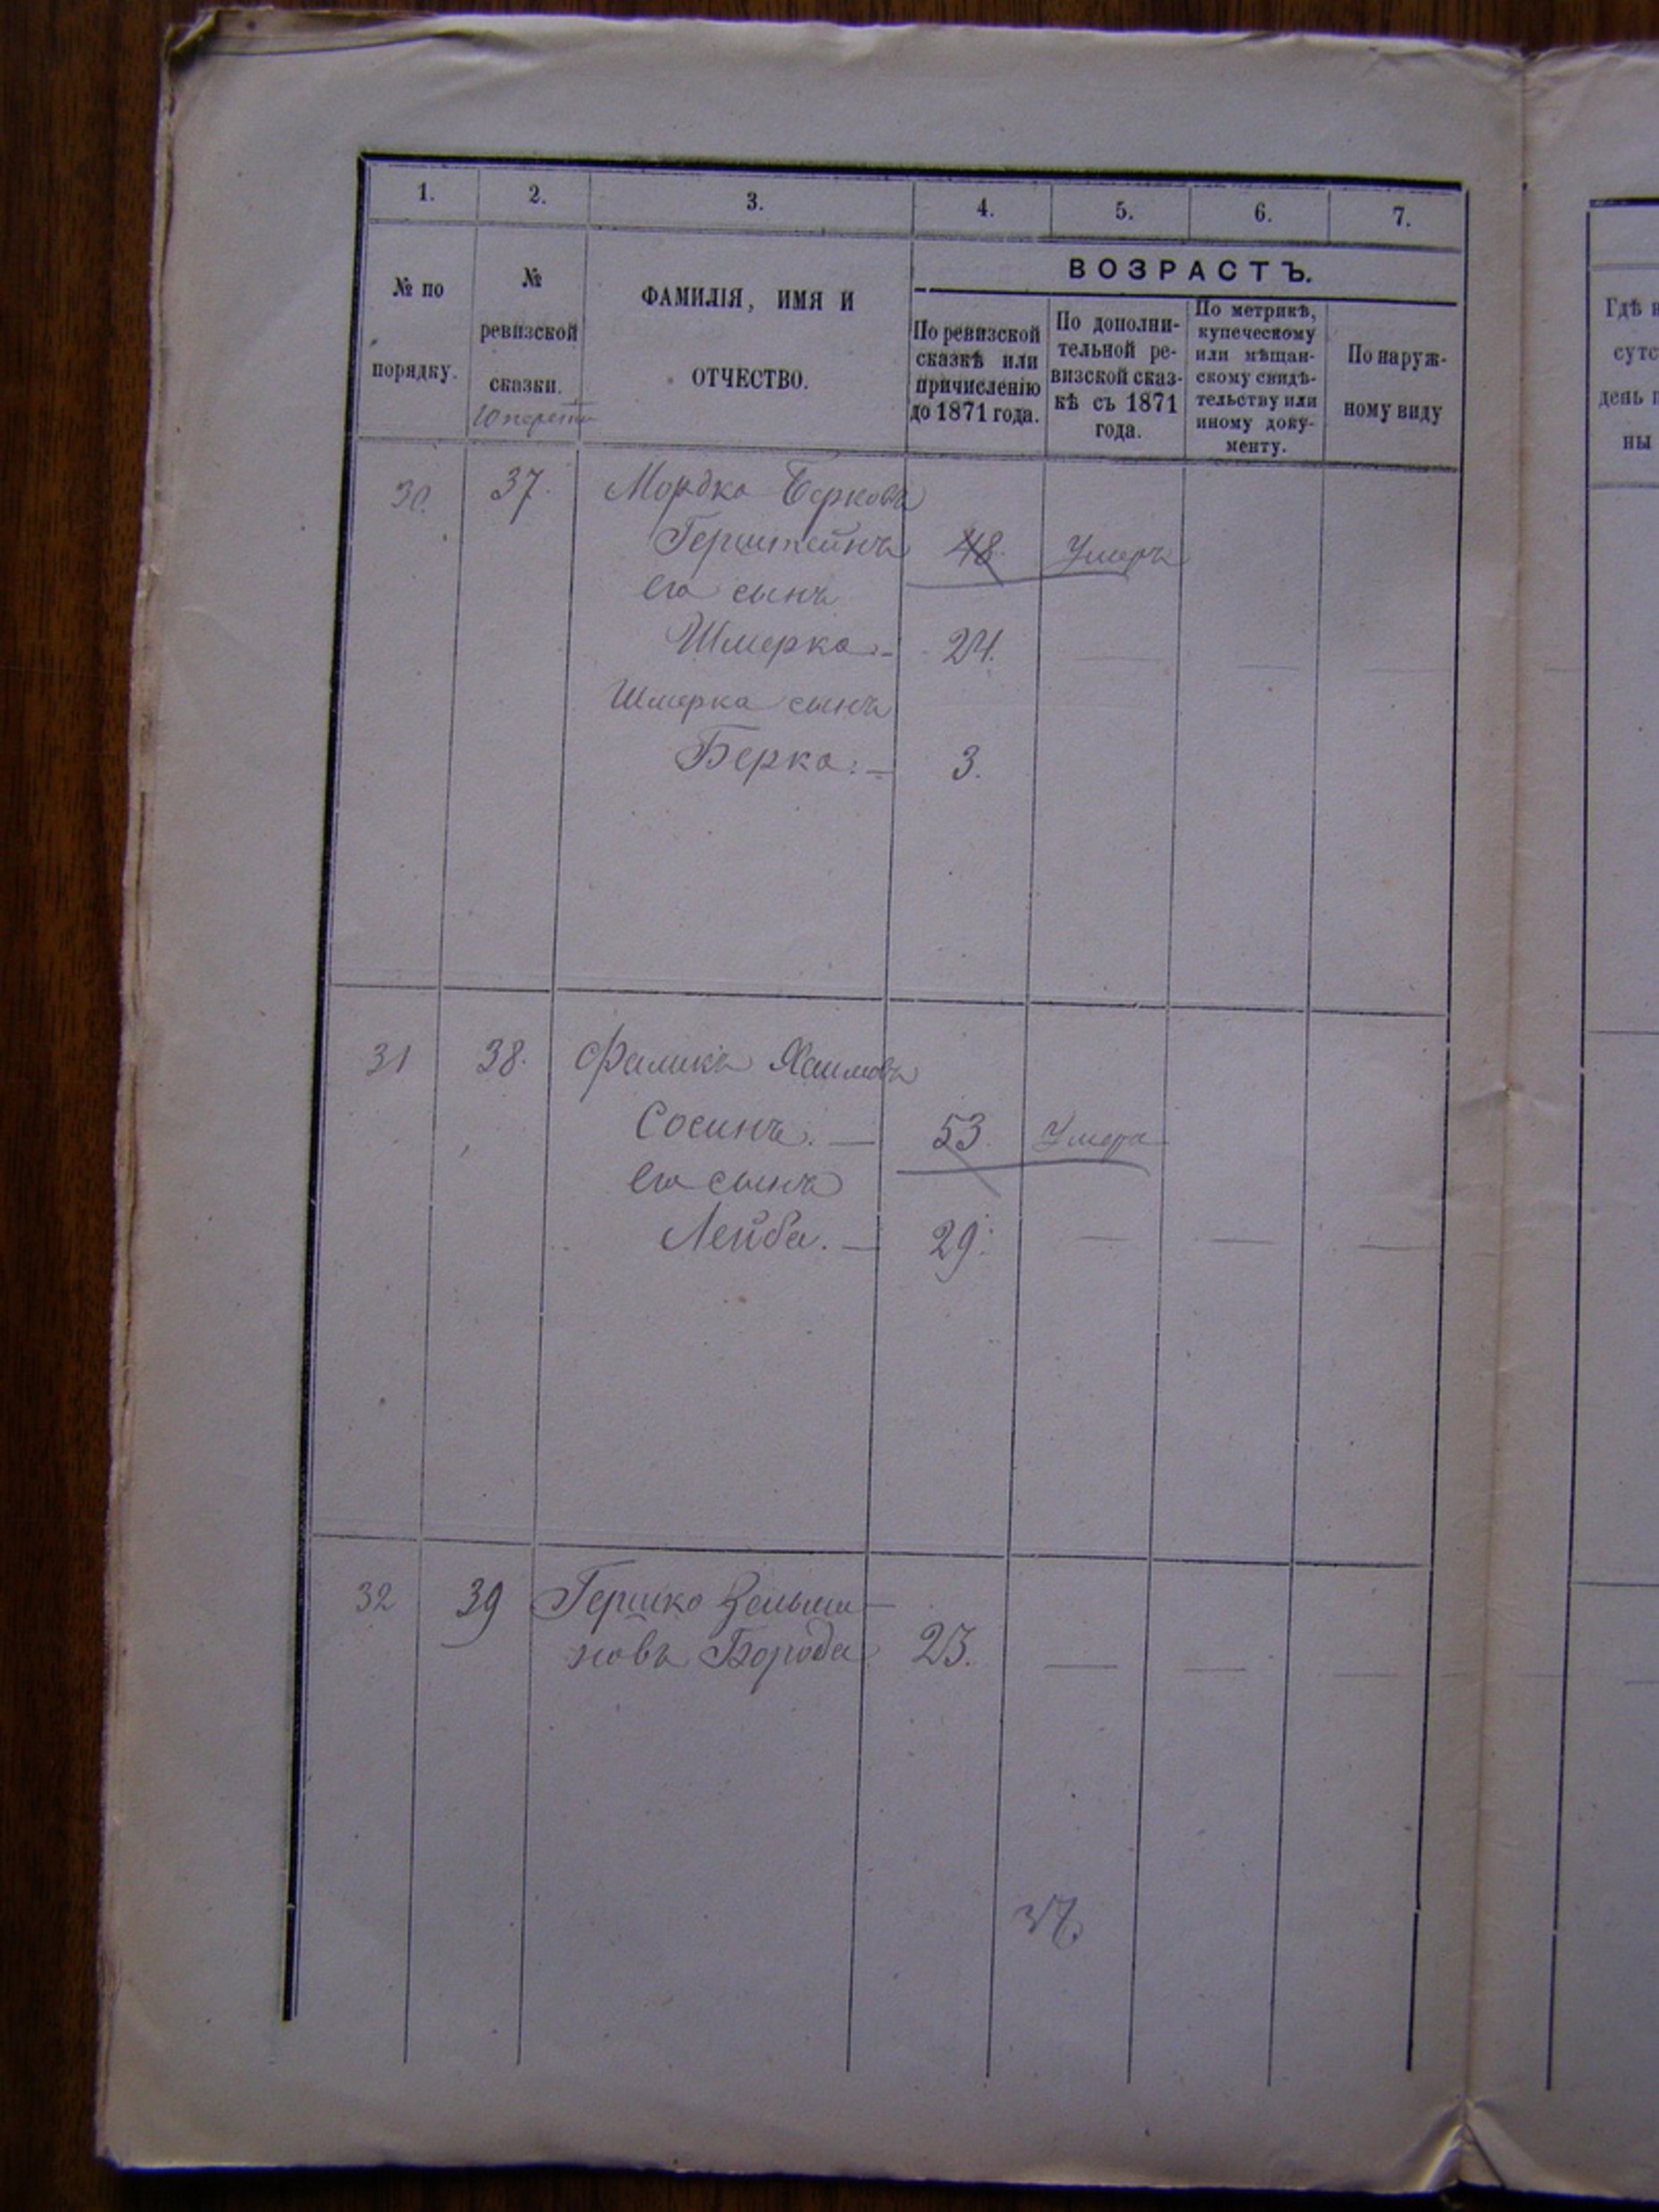 1. 2. 3. 4. 5. 6. 7.
№ по порядку.
№ ревизской сказки.
ФАМИЛІЯ, ИМЯ И ОТЧЕСТВО.
ВОЗРАСТЪ.
По ревизской
сказкѣ или
причисленію
до 1871 года.
По дополни-
тельной ре-
визской сказ-
кѣ съ 1871
года.
По метрикѣ,
купеческому
или мѣщан-
скому свидѣ-
тельству или
иному доку-
менту.
По наруж-
ному виду
30. 37. Мордко Берковъ
Герштейнъ 48. Умеръ
его сынъ
Шмерко. 24.
Шмерка сынъ
Берко. 3.
31 38. Фаликъ Хаимовъ
Сосинъ. 53. Умеръ
его сынъ
Лейба. 29.
32 39 Гершко
новъ Борода 23.
37
Гдѣ
сутс
день
ны